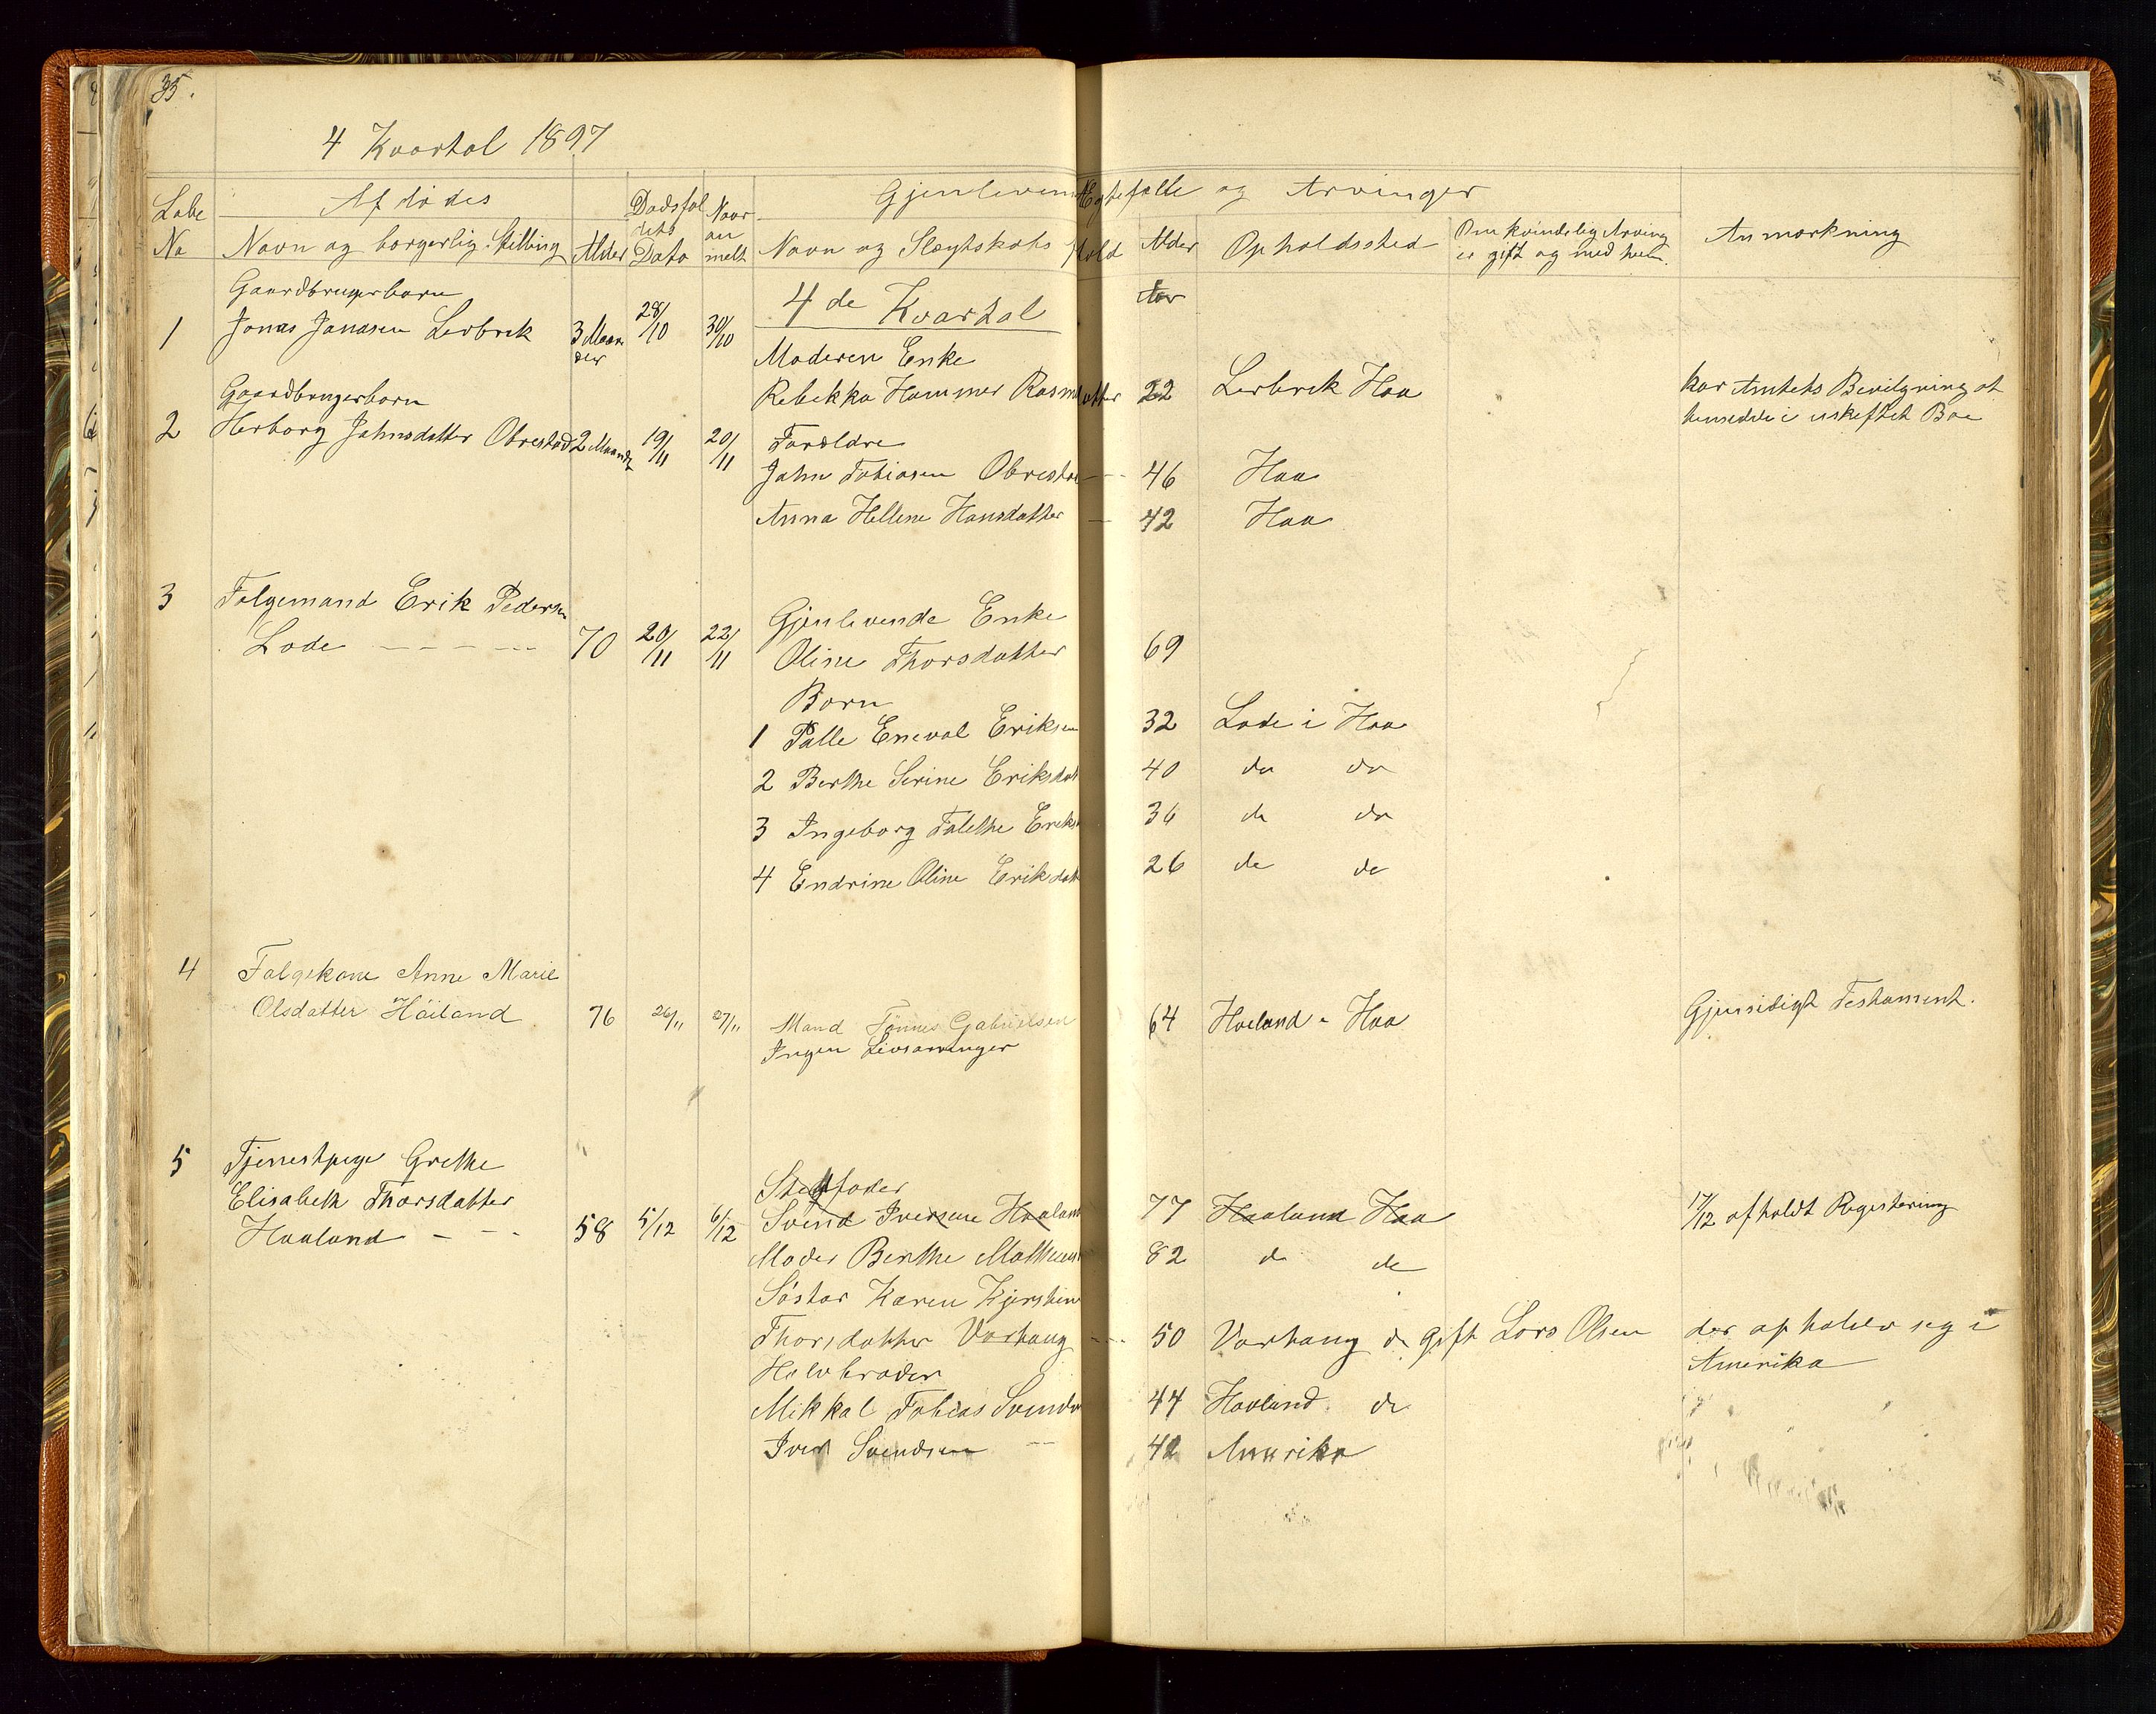 35.
4 Kvartal 1897
Lobe No
Afdødes
Navn og borgerlig Stilling
Alder
Dødsfal
dets
Dato
Naar
an
melt
Gjenlevende Ægtefælle og Arvinger
Navn og Slægtskabs
Alder
Opholdssted
Om kvindelig Arving
er gift og med hvem
Anmærkning
4de Kvartal
Aar
1
Gaardbrugerbarn
Jonas Jonasen Lerbrek
3 Maaneder
28/10
30/10
Moderen Enke
Rebekka Hammer Rasmdatter
22
Lerbrek Haa
har Amtets Bevilgning at
hensidde i uskiftet Boe
2
Gaardbrugerbarn
Herborg Jahnsdatter Obrestad
2 Maander
19/11
20/11
Forældre
Jahn Tobiasen Obrestad
46
Haa
Anna Hellene Hansdatter
42
Haa
3
Folgemand Erik Pedersen
Lode
70
20/11
22/11
Gjenlevende Enke
Oline Thorsdatter
69
Børn
1 Palle Eneval Eriksen
32
Lode i Haa
2 Berthe Serine Eriksdat
40
do do
3 Ingeborg Talethe Eriks
36
do do
4 Endrine Oline Eriksdat
26
do do
4
Folgekone Anne Marie
Olsdatter Håiland
76
26/11
27/11
Mand Tønnes Gabrielsen
Ingen Livsarvinger
64
Hoeland - Haa
Gjensidigt Testament.
5
Tjenestpige Grethe
Elisabeth Thorsdatter
Haaland
58
5/12
6/12
Stedfader
Svend Iversen Haaland
77
Haaland Haa
17/12 afholdt Registering
Moder Berthe
82
do do
Søster Karen Kjerstine
Thorsdatter Varhaug
50
Varhaug do
gift Lars Olsen
der opholder seg i
Amerika
Halvbroder
Mikkal Tobias Svends
44
Haaland do
Iver Svendsen
42
Amerika